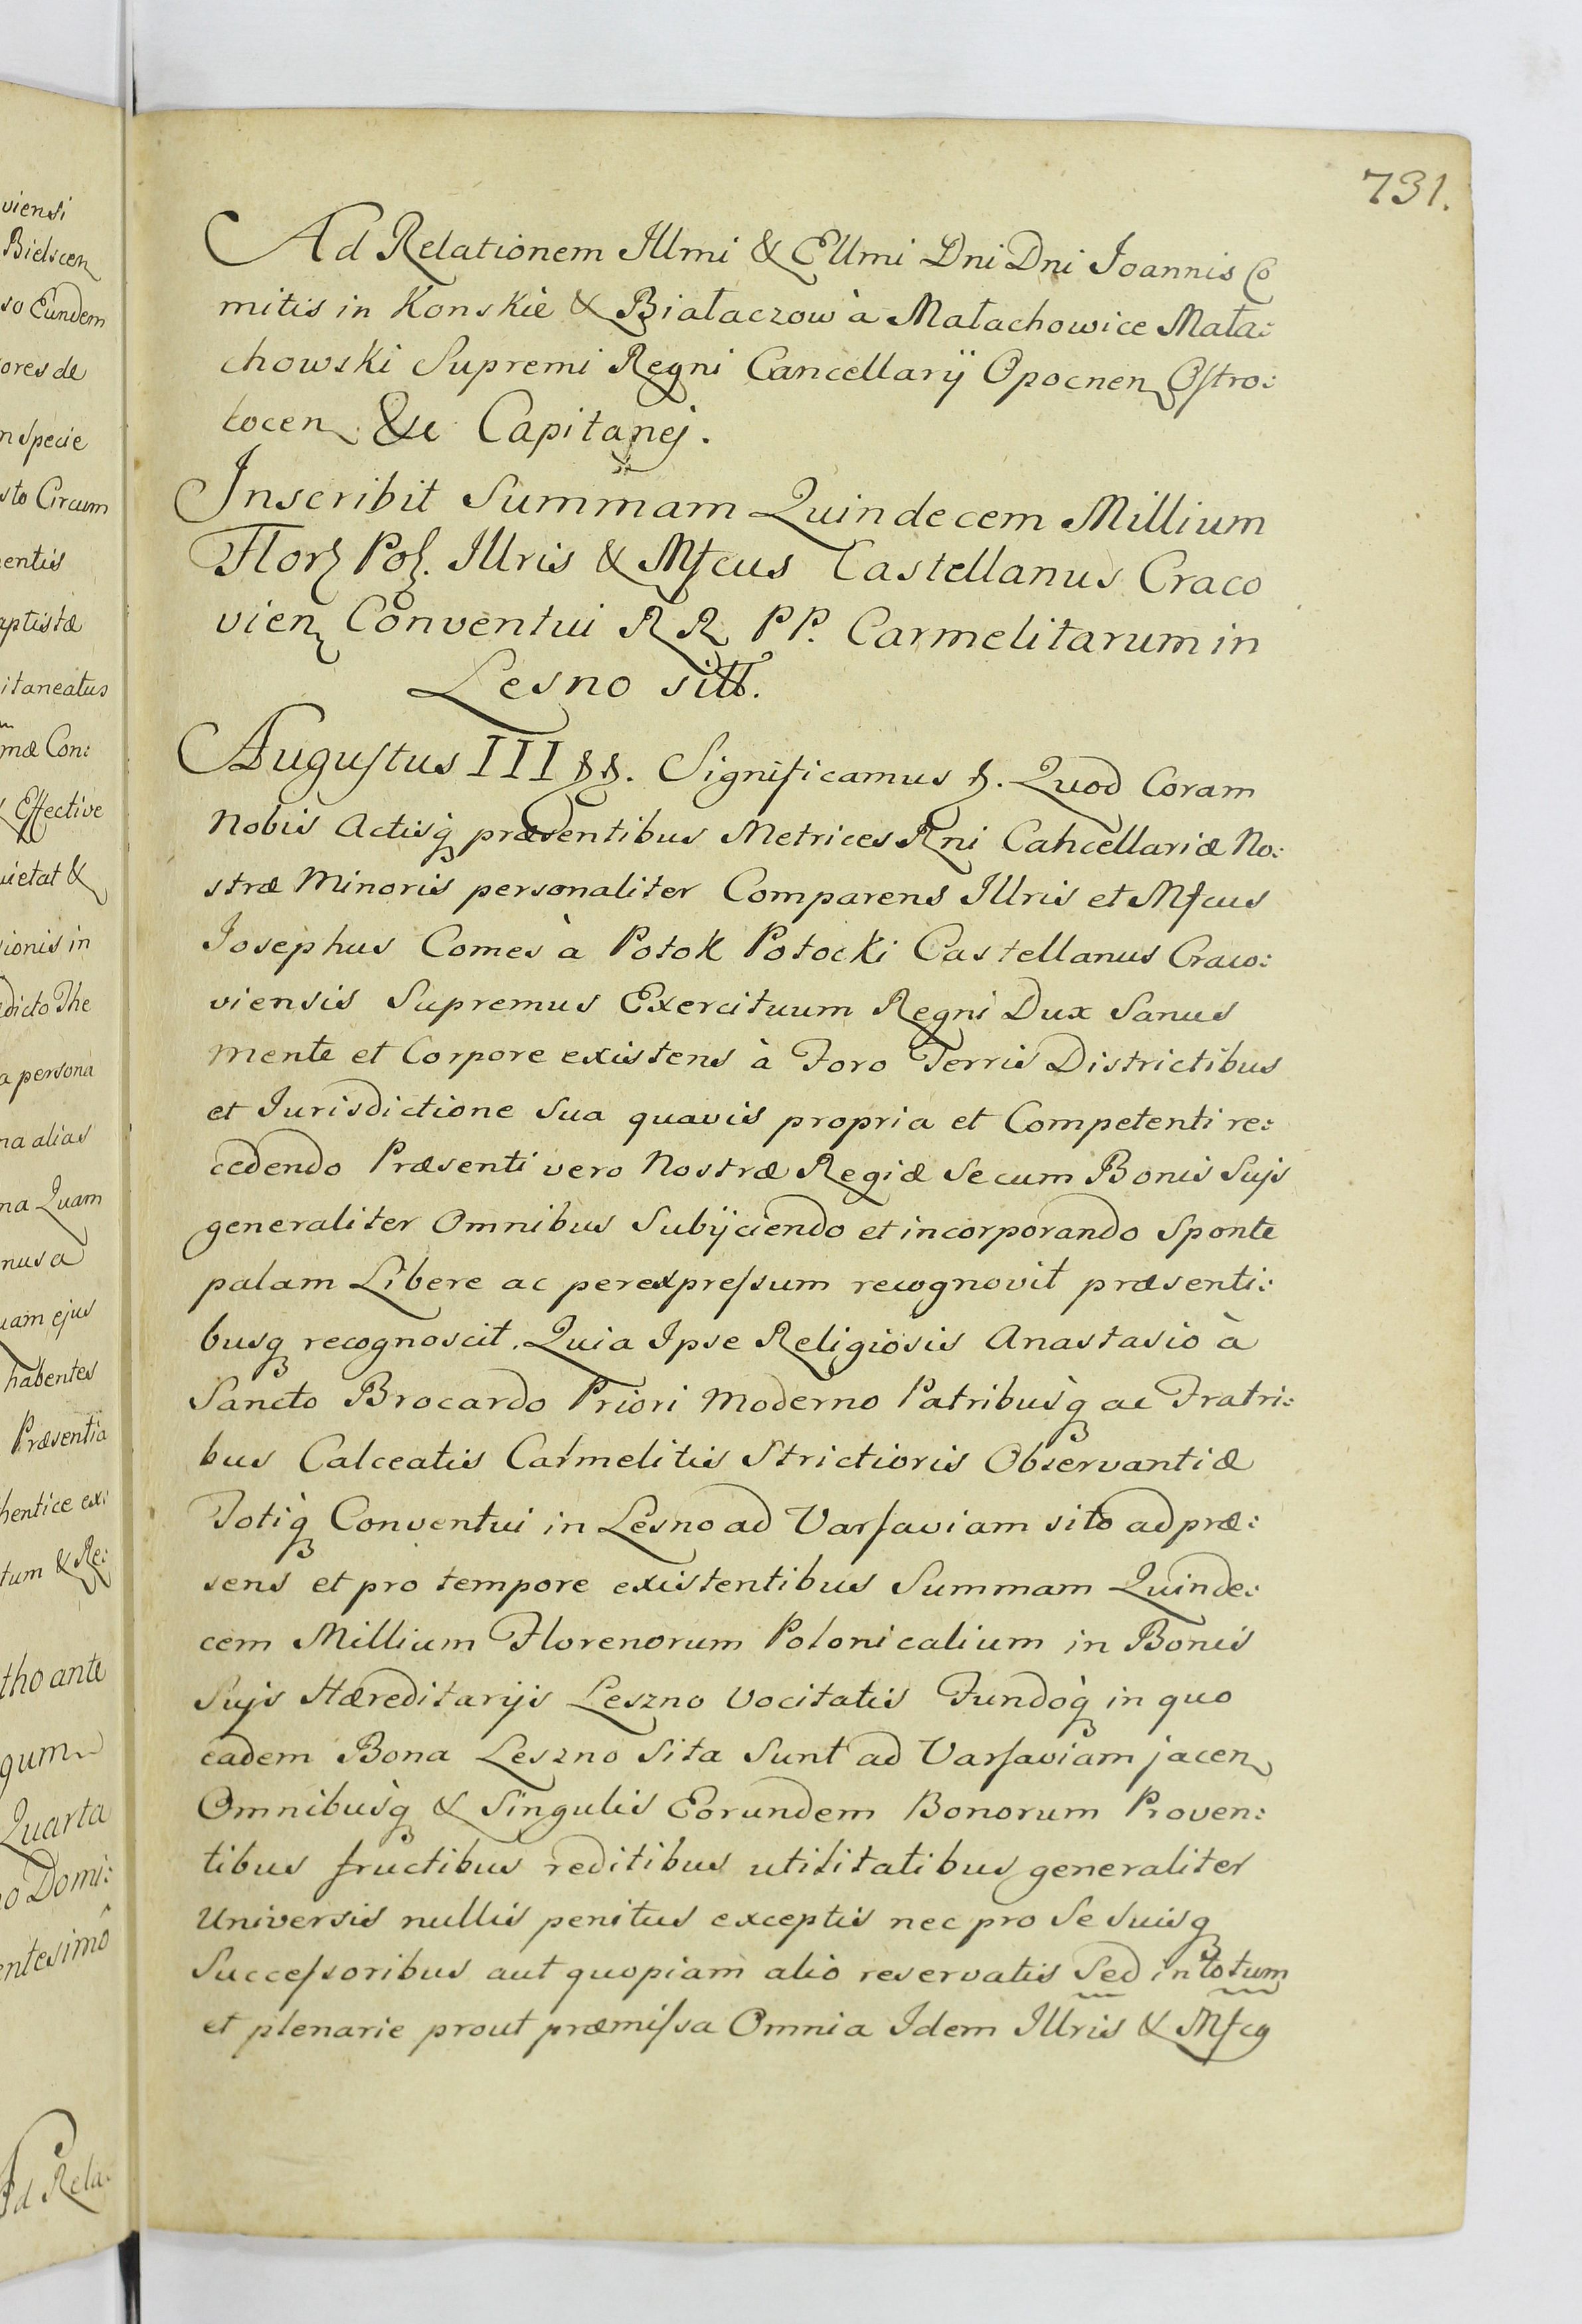 731.
Ad Relationem Illmi & Ellmi Dni Dni Joannis Co
mitis in Konskie & Białaczow à Małachowice Mała:
chowski Supremi Regni Cancellarÿ Opocnen Ostro:
locen &c Capitanej.
Inscribit Summam Quindecem Millium
Flor Pol. Illris & Mfcus Castellanus Craco
vien Conventui RR PP. Carmelitarum in
Lesno sitt.
Augustus III Significamus Quod Coram
Nobis Actisq præsentibus Metrices Rni Cancellariæ No:
stræ Minoris personaliter Comparens Illris et Mfcus
Josephus Comes à Potok Potocki Castellanus Craco:
viensis Supremus Exercituum Regni Dux Sanus
mente et Corpore existens à Foro Terris Districtibus
et Jurisdictione Sua quavis propria et Competenti re:
cedendo Præsenti vero Nostræ Regiæ Se cum Bonis Sujs
generaliter Omnibus Subÿciendo et incorporando Sponte
palam Libere ac per expressum recognovit præsenti:
busq recognoscit. Quia Ipse Religiosis Anastasio à
Sancto Brocardo Priori Moderno Patribusq ac Fratri:
bus Calceatis Carmelitis Strictioris Observantiæ
Totiq Conventui in Lesno ad Varsaviam sito ad præ:
sens et pro tempore existentibus Summam Quinde:
cem Millium Florenorum Polonicalium in Bonis
Sujs Hæreditarÿs Leszno Vocitatis Fundoq in quo
eadem Bona Leszno Sita Sunt ad Varsaviam jacen
Omnibusq & Singulis Eorundem Bonorum Proven:
tibus fructibus reditibus utilitatibus generaliter
Universis nullis penitus exceptis nec pro Se Suisq
Successoribus aut quopiam alio reservatis Sed in totum
et plenarie prout præmissa Omnia Idem Illris & Mfcq
viensi
Bielscen
so Eundem
ores de
n Specie
sto Circum
entis
aptistæ
itaneatus
mæ Con:
Effective
uietat &
ionis in
dicto The
a persona
na alias
na Quam
nus a
uam ejus
habentes
Præsentia
hentice exi
tum & Re:
tho ante
gum
Quarta
o Domi:
entesimo
Ad Rela: